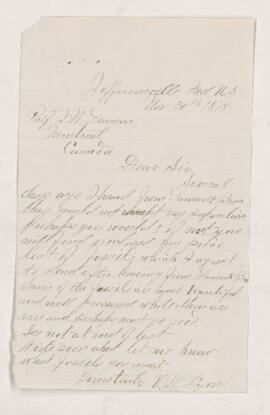 Jeffersonville Ind U.S
Nov 30th 1878
Prof J. W. Dawson
Montreal
Canada
Dear Sir
Several
days ago I heard from
they would not accept my
Perhaps you would & if not you
will find enclosed my price
list of fossils which I agreed
to send after hearing from
Some of the fossils are most beautiful
and well preserved while others are
rare and perhaps not so good
See note at end of list
Write soon and let me know
what fossils you want
Yours truly V. W. Lyon